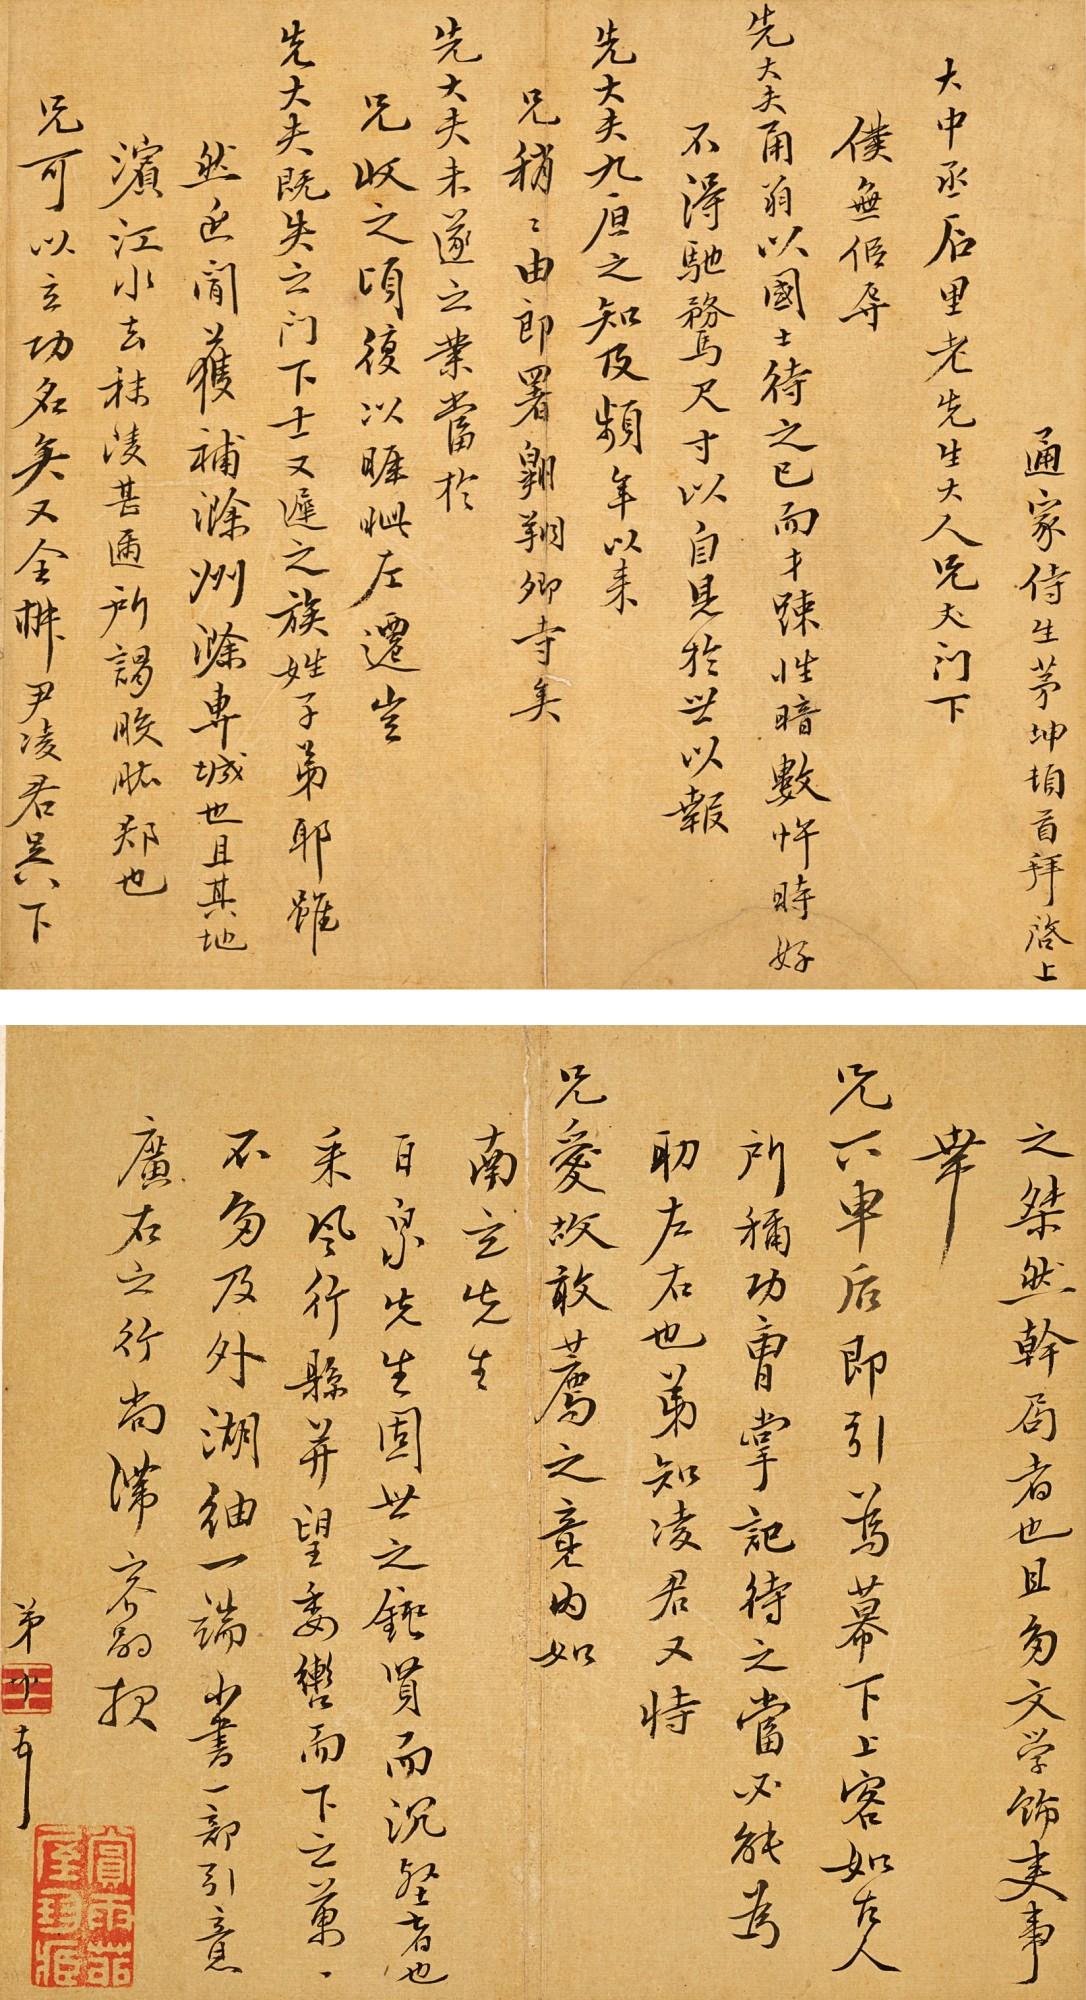 通家侍生茅坤頓首拜啓上
大中丞后里老先生大人兄丈门下
僕無侣辱
先大夫甬翁以國士待之已而才踈性暗數忤時好
不得馳騖尺寸以自見於世以報
先大夫九原之知及頻年以来
兄稍々由郎署翱翔卿寺矣
先大夫未遂之業當於
兄收之頃復以睚眦左遷豈
先大夫既失之门下士又遲之族姓子弟耶雖
然近聞獲補滁州滁專城也且其地
濱江水去秣陵甚邇所謂股肱郡也
兄可以立功名矣又全椒尹凌君吴下
之桀然幹局者也且多文学飾吏事
幸
兄下車后即引為幕下上客如古人
所稱功曹掌記待之當必能為
助左右也弟知凌君又恃
兄愛故敢薦之竟内如
南玄先生
百泉先生固世之鉅賢而沉壑者也
采风行縣并望委轡而下之萬々
不多及外湖紬一端小書一部引意
廣右之行尚滯容嗣报
弟坤頓